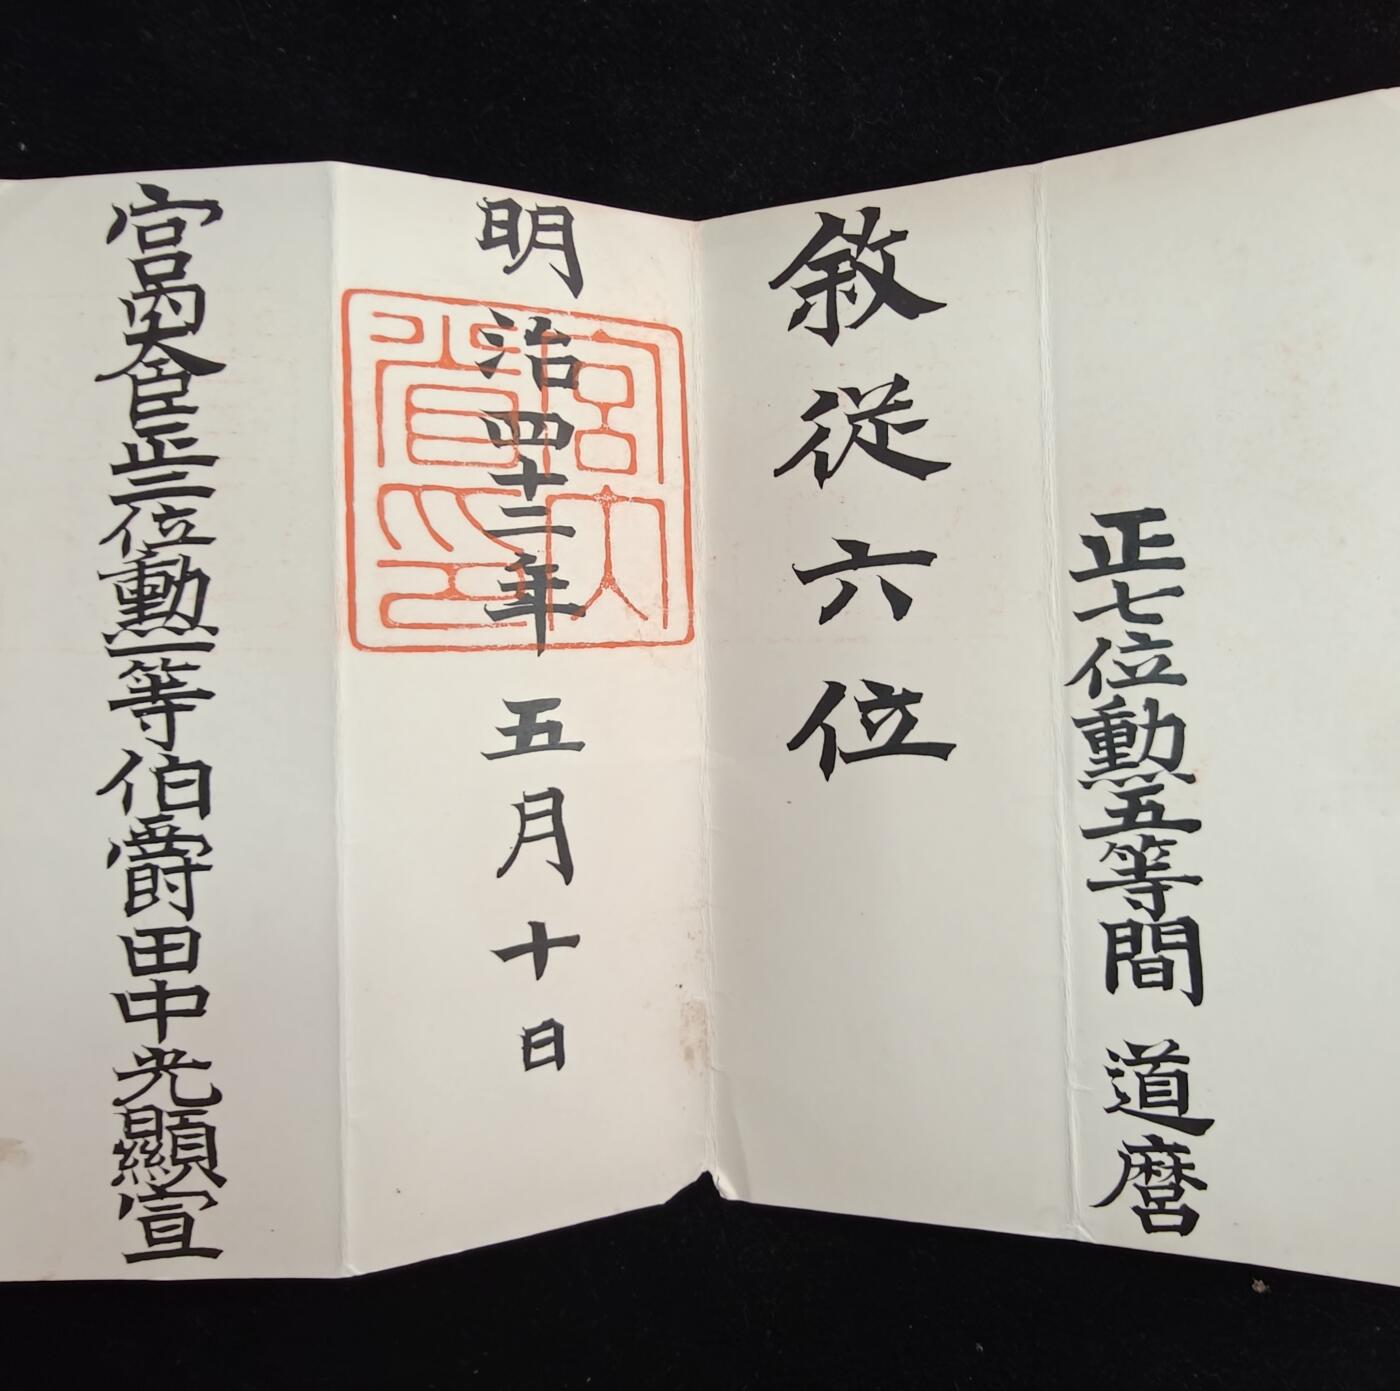 正七位勲五等間 道麿
敘從六位
明治四十二年五月十日
宮内大臣正二位勲一等伯爵田中光顯宣
宮内省印